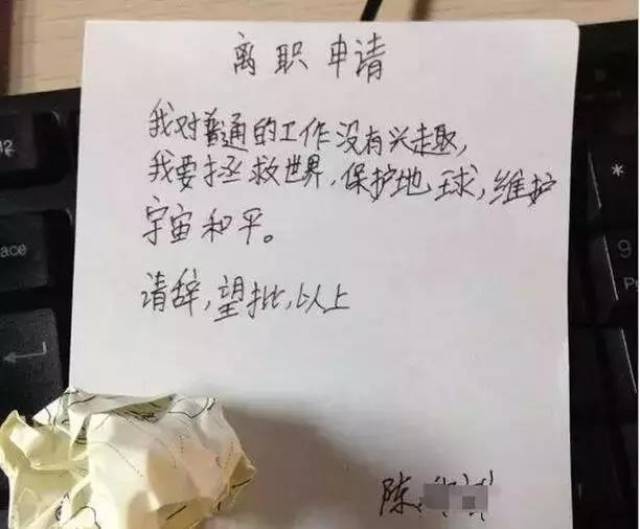 离职申请
我对普通的工作没有兴趣,
我要拯救世界,保护地球,维护
宇宙和平。
请辞,望批,以上
陈
ace
*
9